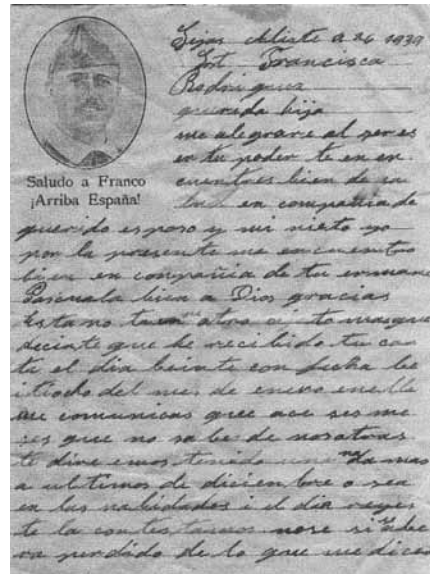 Sejas Aliste a 26 1939
Francisca
Rodriguez
querida hija
me alegrare al ser es
en tu poder te en en
cuentres bien de sa
lud en compañia de
Saludo a Franco
¡Arriba España!
querido esposo y mi nieto yo
por la presente me encuentro
bien en compañia de tu ermana
Pascuala bien a Dios gracias
Estamo to mas que
decirte que he recibido tu car
ta el dia beinte con fecha be
itiocho del mes de enero en ella
me comunicas que ace ses me
ses que no sabes de nosotras
te dire emos tenido una mas
a ultimos de diciembre o sea
en las nabidades i el dia reyes
te la contestamos nose si abe
ra perdido de lo que me dices